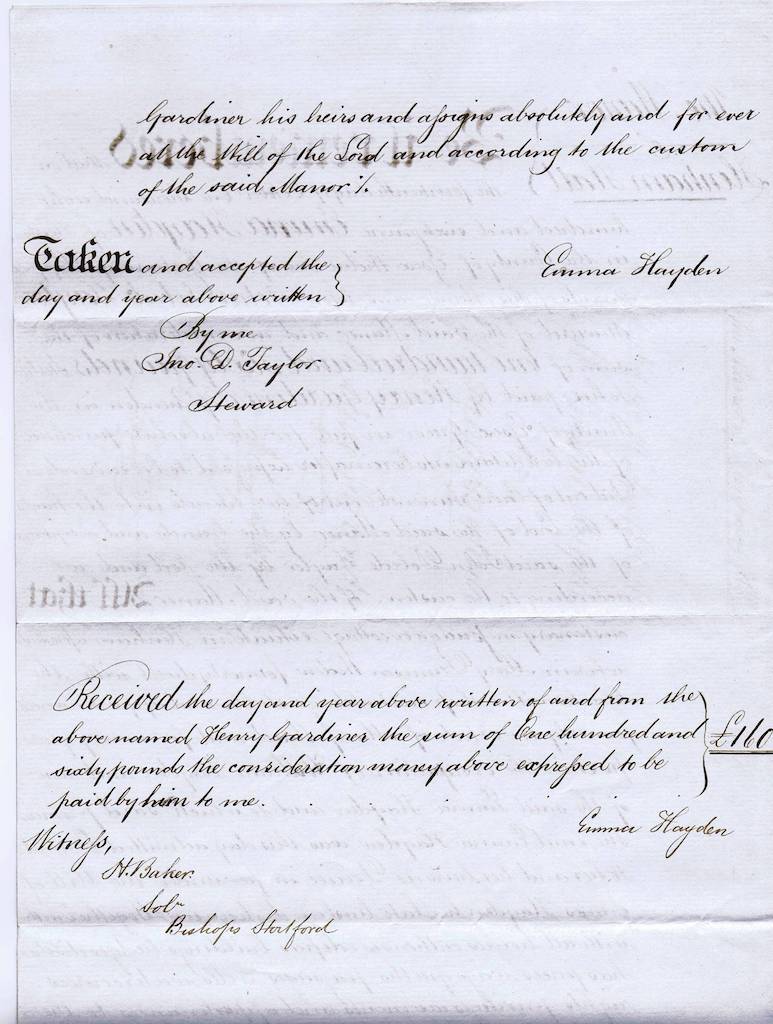 Gardiner his heirs and assigns absolutely and for ever
at the Will of the Lord and according to the custom
of the said Manor ·/.
Taken and accepted the
day and year above written
Emma Hayden
By me
Jno. D. Taylor
Steward
Received the day and year above written of and from the
above named Henry Gardiner the sum of One hundred and
sixty pounds the consideration money above expressed to be
paid by him to me.
£160
Emma Hayden
Witness,
H. Baker.
Solr
Bishops Stortford